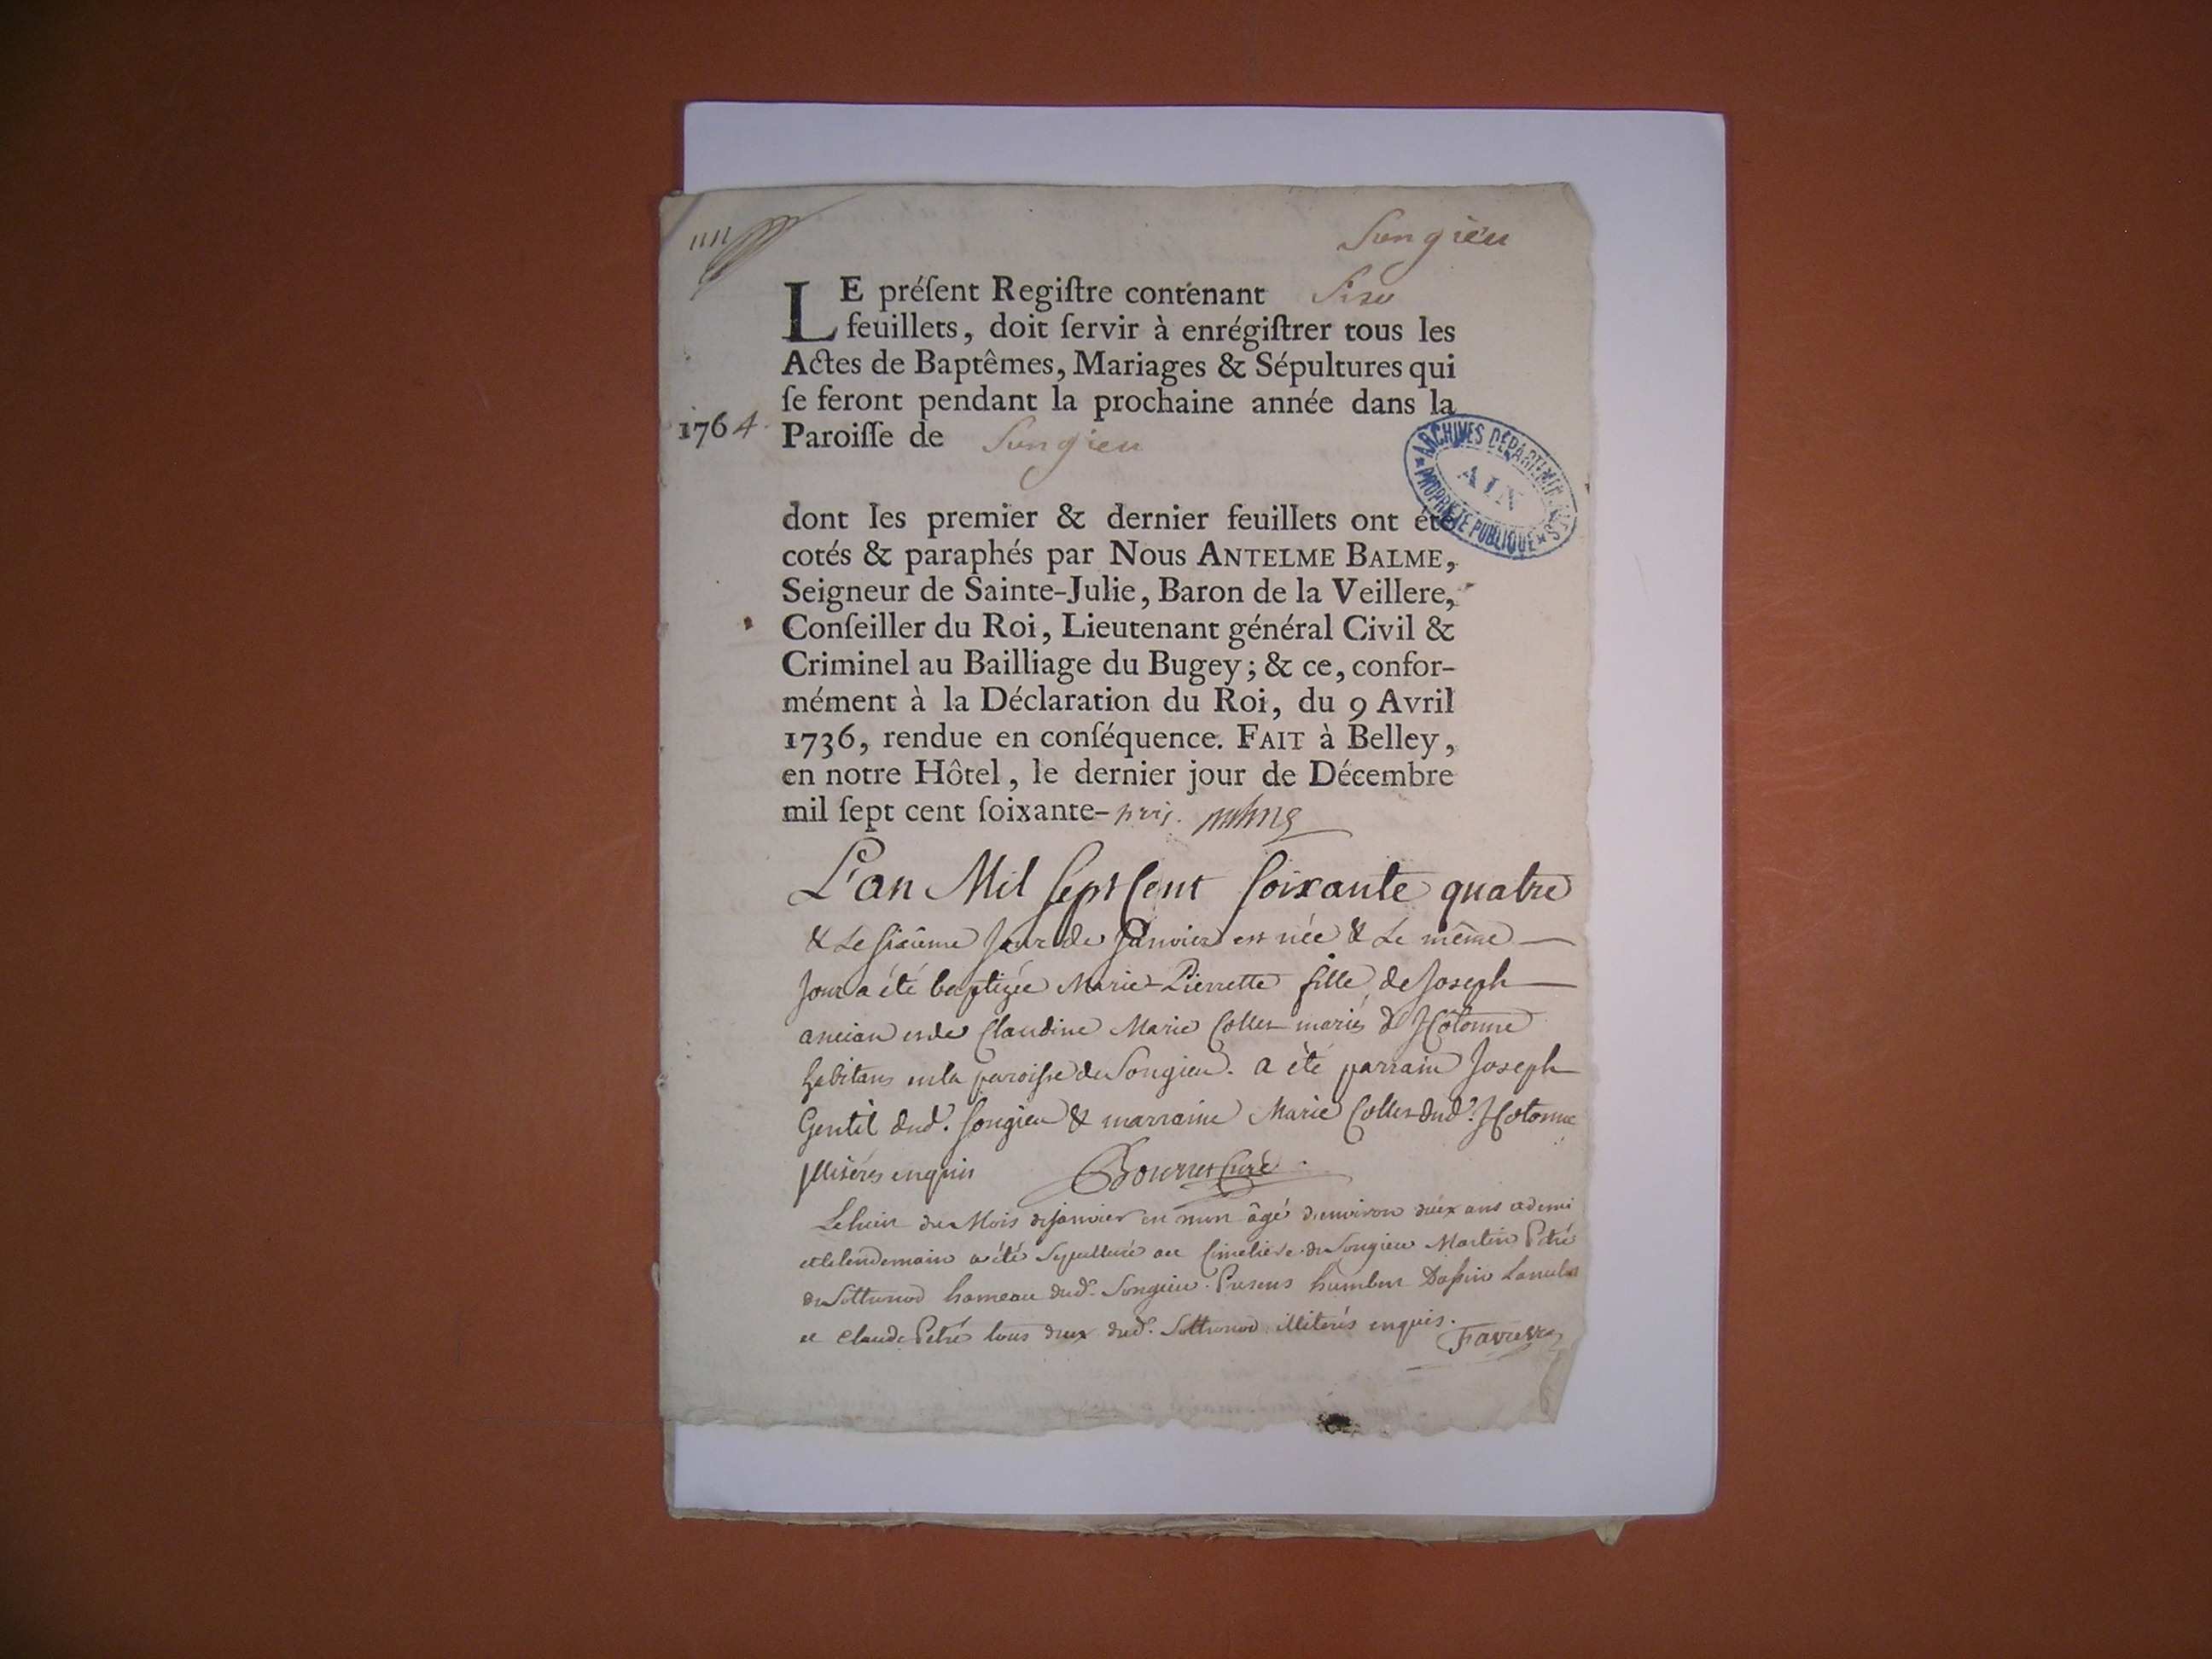 Songieu
LE préſent Regiſtre contenant Six
feuillets, doit ſervir à enrégiſtrer tous les
Actes de Baptêmes, Mariages & Sépultures qui
ſe feront pendant la prochaine année dans la
1764 Paroiſſe de Songieu
ARCHIVES DÉPARTEMENTALES
AIN
PROPRIÉTÉ PUBLIQUE
dont les premier & dernier feuillets ont été
cotés & paraphés par Nous ANTELME BALME,
Seigneur de Sainte-Julie, Baron de la Veillere,
Conſeiller du Roi, Lieutenant général Civil &
Criminel au Bailliage du Bugey; & ce, confor-
mément à la Déclaration du Roi, du 9 Avril
1736, rendue en conſéquence. FAIT à Belley,
en notre Hôtel, le dernier jour de Décembre
mil ſept cent ſoixante-trois.
L'an Mil Sept Cent soixante quatre
& Le sixième Jour de Janvier est née & Le même
Jour a été baptizée Marie-Pierrette fille de Joseph
ancian et de Claudine Marie Collet mariés d'Hotonne
habitans en la paroisse de Songieu. a été parrain Joseph
Gentil dud. Songieu & marraine Marie Collet dud. Hotonne
Illiterés enquis Bourret Curé
Le huit du Mois de janvier est mort âgé d'environ deux ans et demi
et le lendemain a été sepulturé au Cimetiere de Songieu Martin Petré
de Sothonod hameau dud. Songieu. Presens humbert
et Claude Petré tous deux dud. Sothonod illiterés enquis. Favre